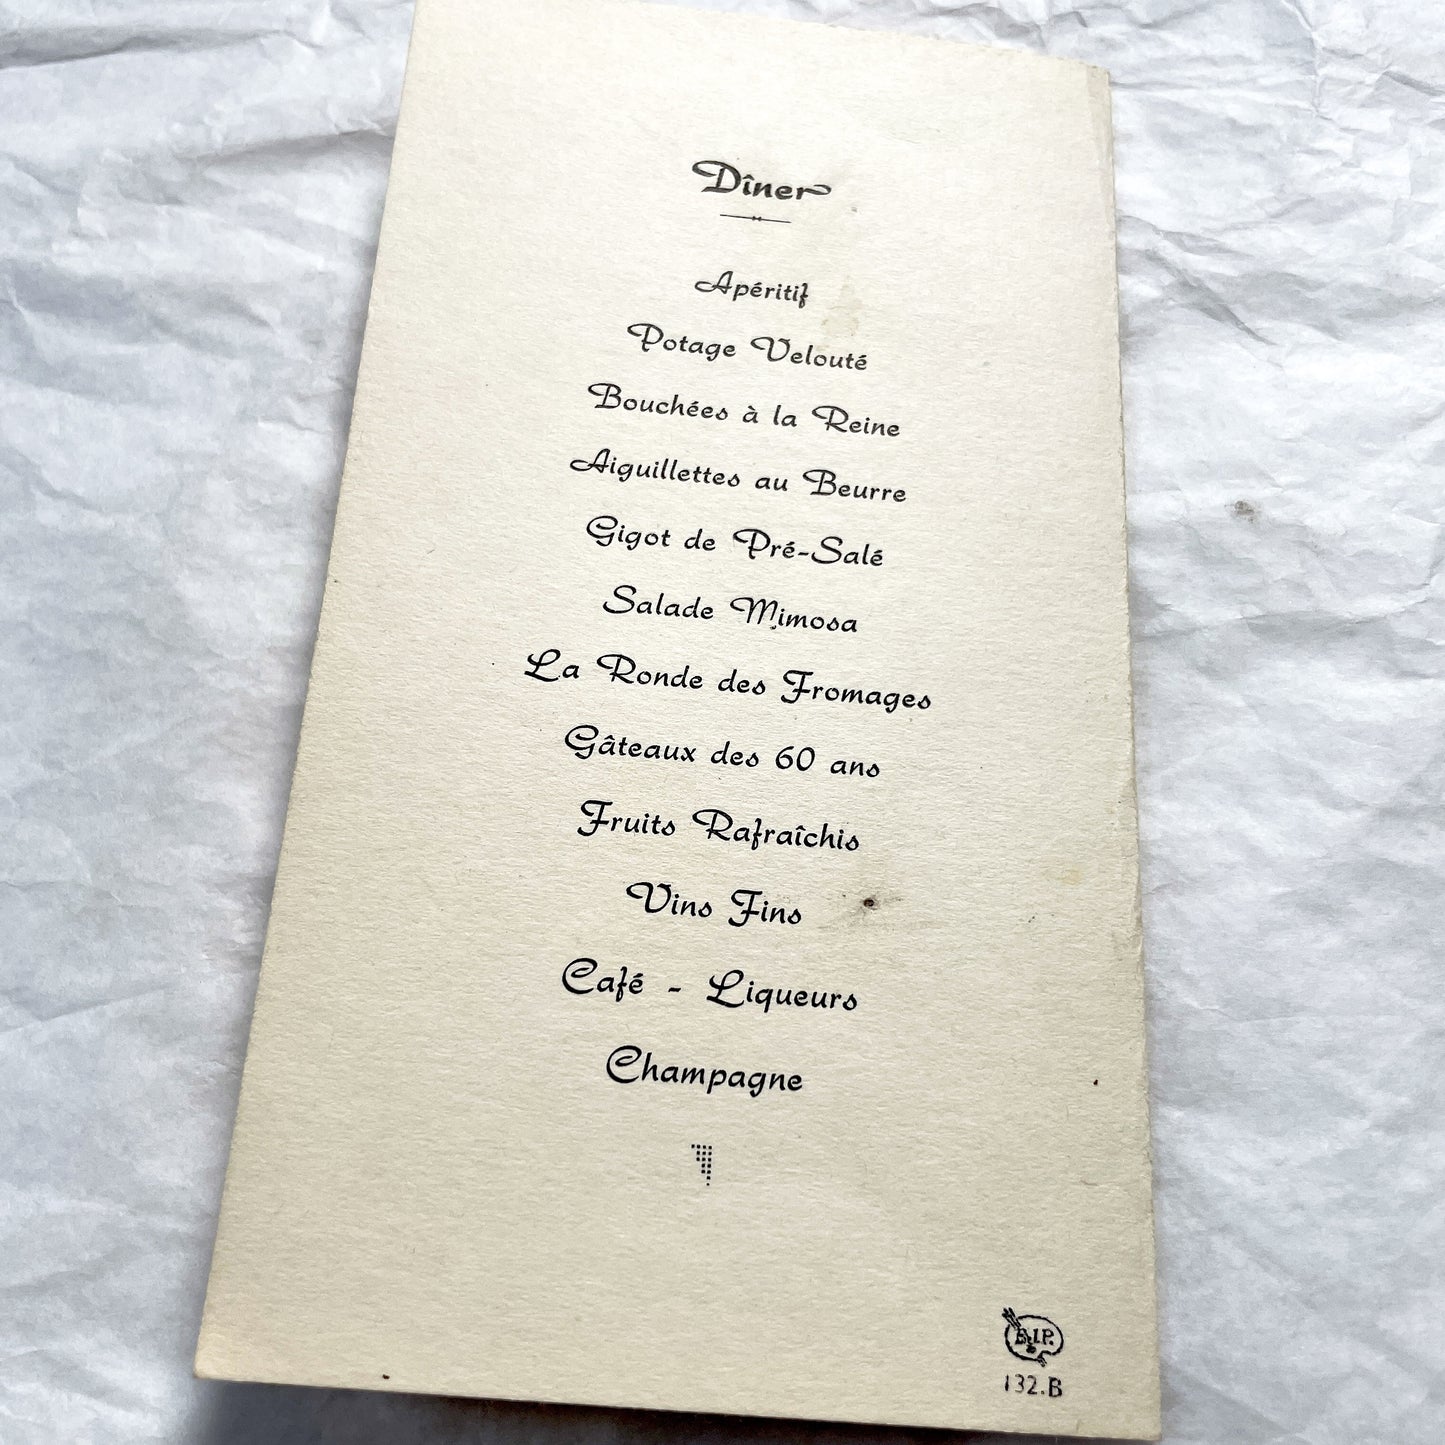 Dîner
Apéritif
Potage Velouté
Bouchées à la Reine
Aiguillettes au Beurre
Gigot de Pré-Salé
Salade Mimosa
La Ronde des Fromages
Gâteaux des 60 ans
Fruits Rafraîchis
Vins Fins
Café - Liqueurs
Champagne
B.I.P.
132.B